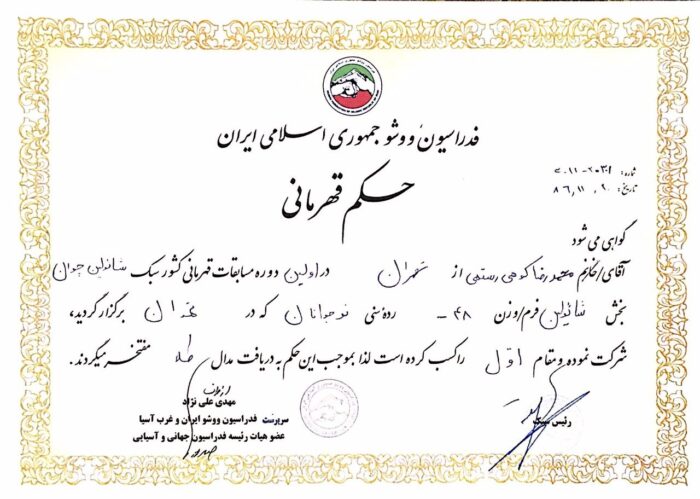 فدراسیون ووشو جمهوری اسلامی ایران
شماره:
تاریخ: ۸۶,۱۱,۲۰
حکم قهرمانی
گواهی می شود
آقای/خانم محمدرضا کوهی رستمی از تهران در اولین دوره مسابقات قهرمانی کشور سبک شائولین جوان
بخش شائولین فرم/وزن ۴۸- رده سنی نوجوانان که در تهران برگزار گردید،
شرکت نموده و مقام اول را کسب کرده است لذا بموجب این حکم به دریافت مدال طلا مفتخر میگردند.
مهدی علی نژاد
سرپرست فدراسیون ووشو ایران و غرب آسیا
عضو هیات رئیسه فدراسیون جهانی و آسیایی
رئیس سبک